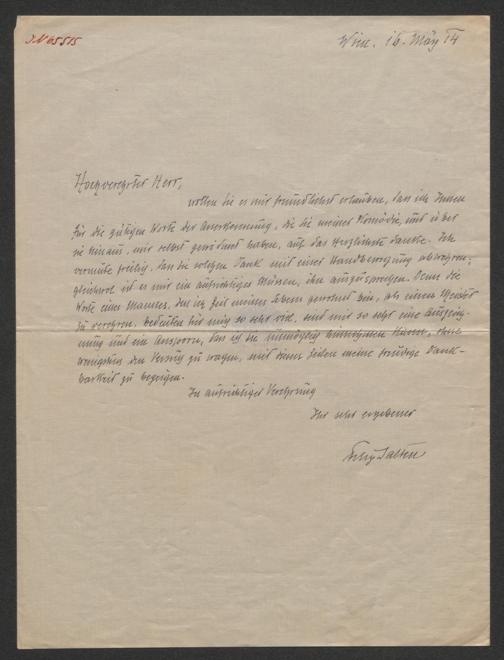 J.N 65515
Wien. 16. März 14
Hochverehrter Herr,
wollen Sie es mir freundlichst erlauben, daß ich Ihnen
für die gütigen Worte der Anerkennung, die Sie meiner Komödie, und über
sie hinaus, mir selbst gewidmet haben, auf das Herzlichste danke. Ich
vermute freilich, daß Sie solchen Dank mit einer Handbewegung abwehren;
gleichwol ist es mir ein aufrichtiges Müssen, ihn auszusprechen. Denn die
Worte eines Mannes, den ich Zeit meines Lebens gewohnt bin, als einen Meister
zu verehren, bedeuten für mich so sehr viel, sind mir so sehr eine Auszeich-
nung und ein Ansporn, daß ich sie unmöglich hinnehmen kann, ohne
wenigstens den Versuch zu wagen, mit diesen Zeilen meine freudige Dank-
barkeit zu bezeigen.
In aufrichtiger Verehrung
Ihr sehr ergebener
Felix Salten